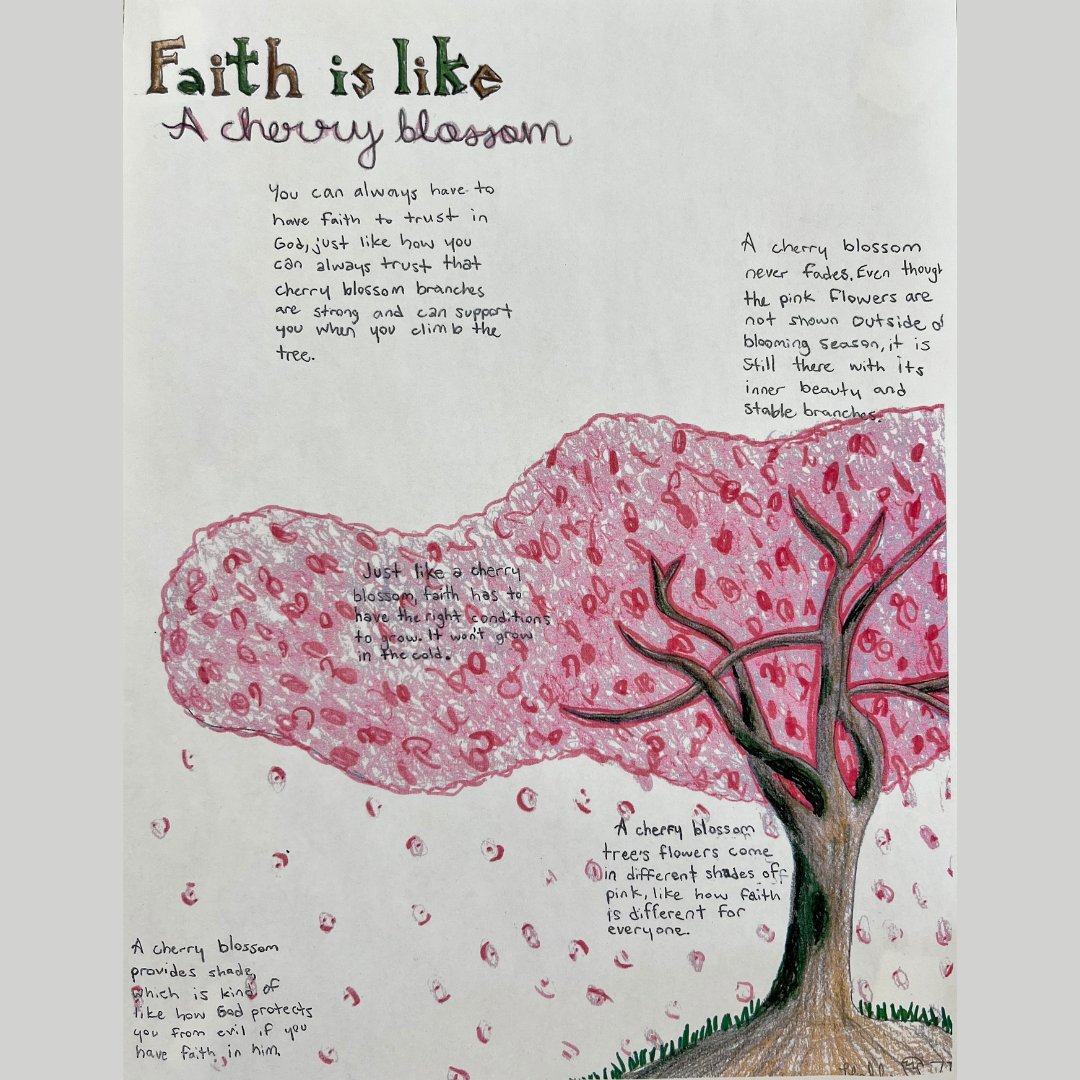 Faith is like
A cherry blossom
You can always have to
have faith to trust in
God, just like how you
can always trust that
cherry blossom branches
are strong and can support
you when you climb the
tree.
A cherry blossom
never fades. Even though
the pink flowers are
not shown outside of
blooming season, it is
still there with its
inner beauty and
stable branches.
Just like a cherry
blossom, faith has to
have the right conditions
to grow. It won't grow
in the cold.
A cherry blossom
tree's flowers come
in different shades off
pink, like how faith
is different for
everyone.
A cherry blossom
provides shade,
which is kind of
like how God protects
you from evil if you
have faith in him.